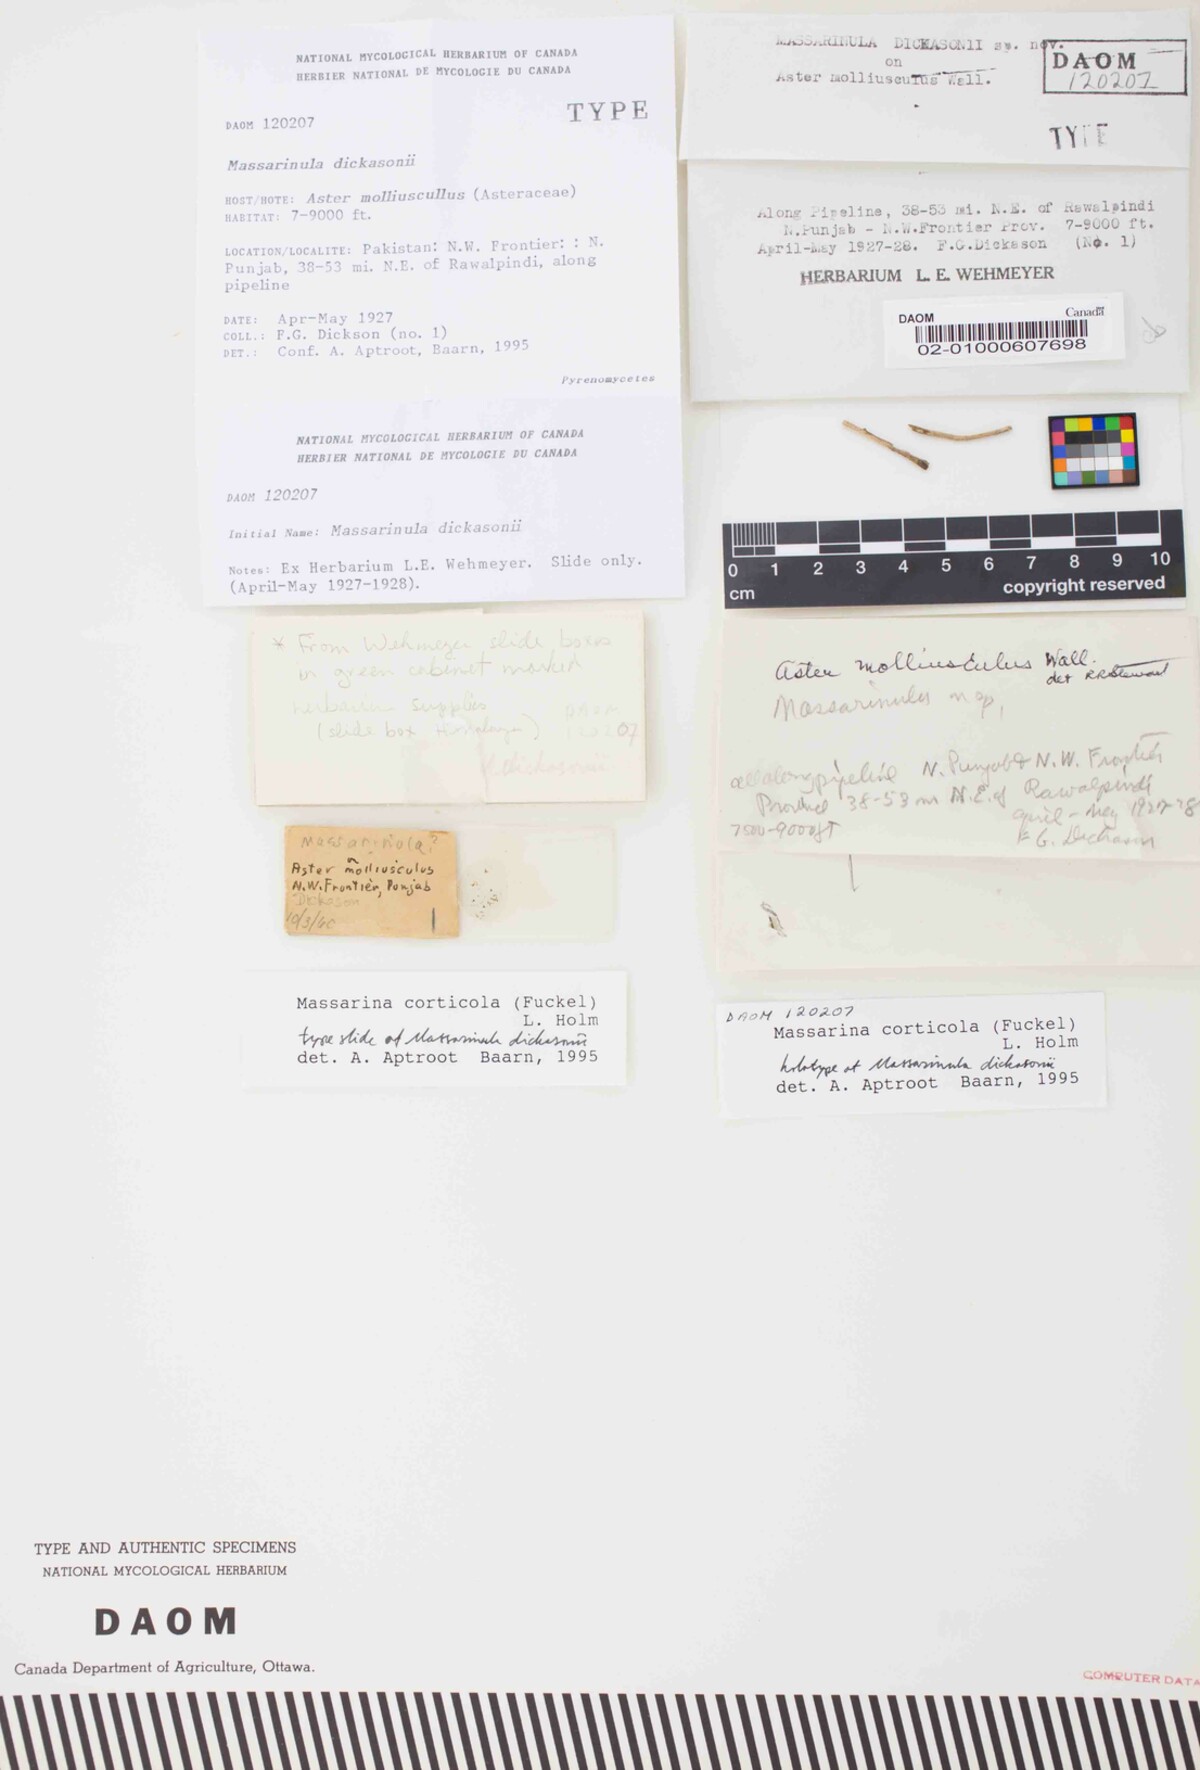 NATIONAL MYCOLOGICAL HERBARIUM OF CANADA
HERBIER NATIONAL DE MYCOLOGIE DU CANADA
TYPE
DAOM 120207
Massarinula dickasonii
HOST/HOTE: Aster molliuscullus (Asteraceae)
HABITAT: 7-9000 ft.
LOCATION/LOCALITE: Pakistan: N.W. Frontier: : N.
Punjab, 38-53 mi. N.E. of Rawalpindi, along
pipeline
DATE: Apr-May 1927
COLL.: F.G. Dickson (no. 1)
DET.: Conf. A. Aptroot, Baarn, 1995
Pyrenomycetes
NATIONAL MYCOLOGICAL HERBARIUM OF CANADA
HERBIER NATIONAL DE MYCOLOGIE DU CANADA
DAOM 120207
Initial Name: Massarinula dickasonii
Notes: Ex Herbarium L.E. Wehmeyer. Slide only.
(April-May 1927-1928).
* From Wehmeyer slide boxes
in green cabinet marked
herbarium supplies
(slide box Himalaya)
DAOM
120207
M. dickasonii
Massarinula?
Aster molliusculus
N.W. Frontier, Punjab
Dickason
10/3/60
Massarina corticola (Fuckel)
L. Holm
type slide of Massarinula dickasonii
det. A. Aptroot Baarn, 1995
MASSARINULA DICKASONII sp. nov.
on
Aster molliusculus Wall.
DAOM
120207
TYPE
Along Pipeline, 38-53 mi. N.E. of Rawalpindi
N.Punjab - N.W.Frontier Prov. 7-9000 ft.
April-May 1927-28. F.G.Dickason (No. 1)
HERBARIUM L. E. WEHMEYER
DAOM
Canada
02-01000607698
0 1 2 3 4 5 6 7 8 9 10
cm
copyright reserved
Aster molliusculus Wall.
det RRStewart
Massarinula n sp.
along pipeline N. Punjab & N.W. Frontier
Province 38-53 mi N.E. of Rawalpindi
april - may 1927-28
7500-9000 ft
F. G. Dickason
DAOM 120207
Massarina corticola (Fuckel)
L. Holm
holotype of Massarinula dickasonii
det. A. Aptroot Baarn, 1995
TYPE AND AUTHENTIC SPECIMENS
NATIONAL MYCOLOGICAL HERBARIUM
DAOM
Canada Department of Agriculture, Ottawa.
COMPUTER DATA